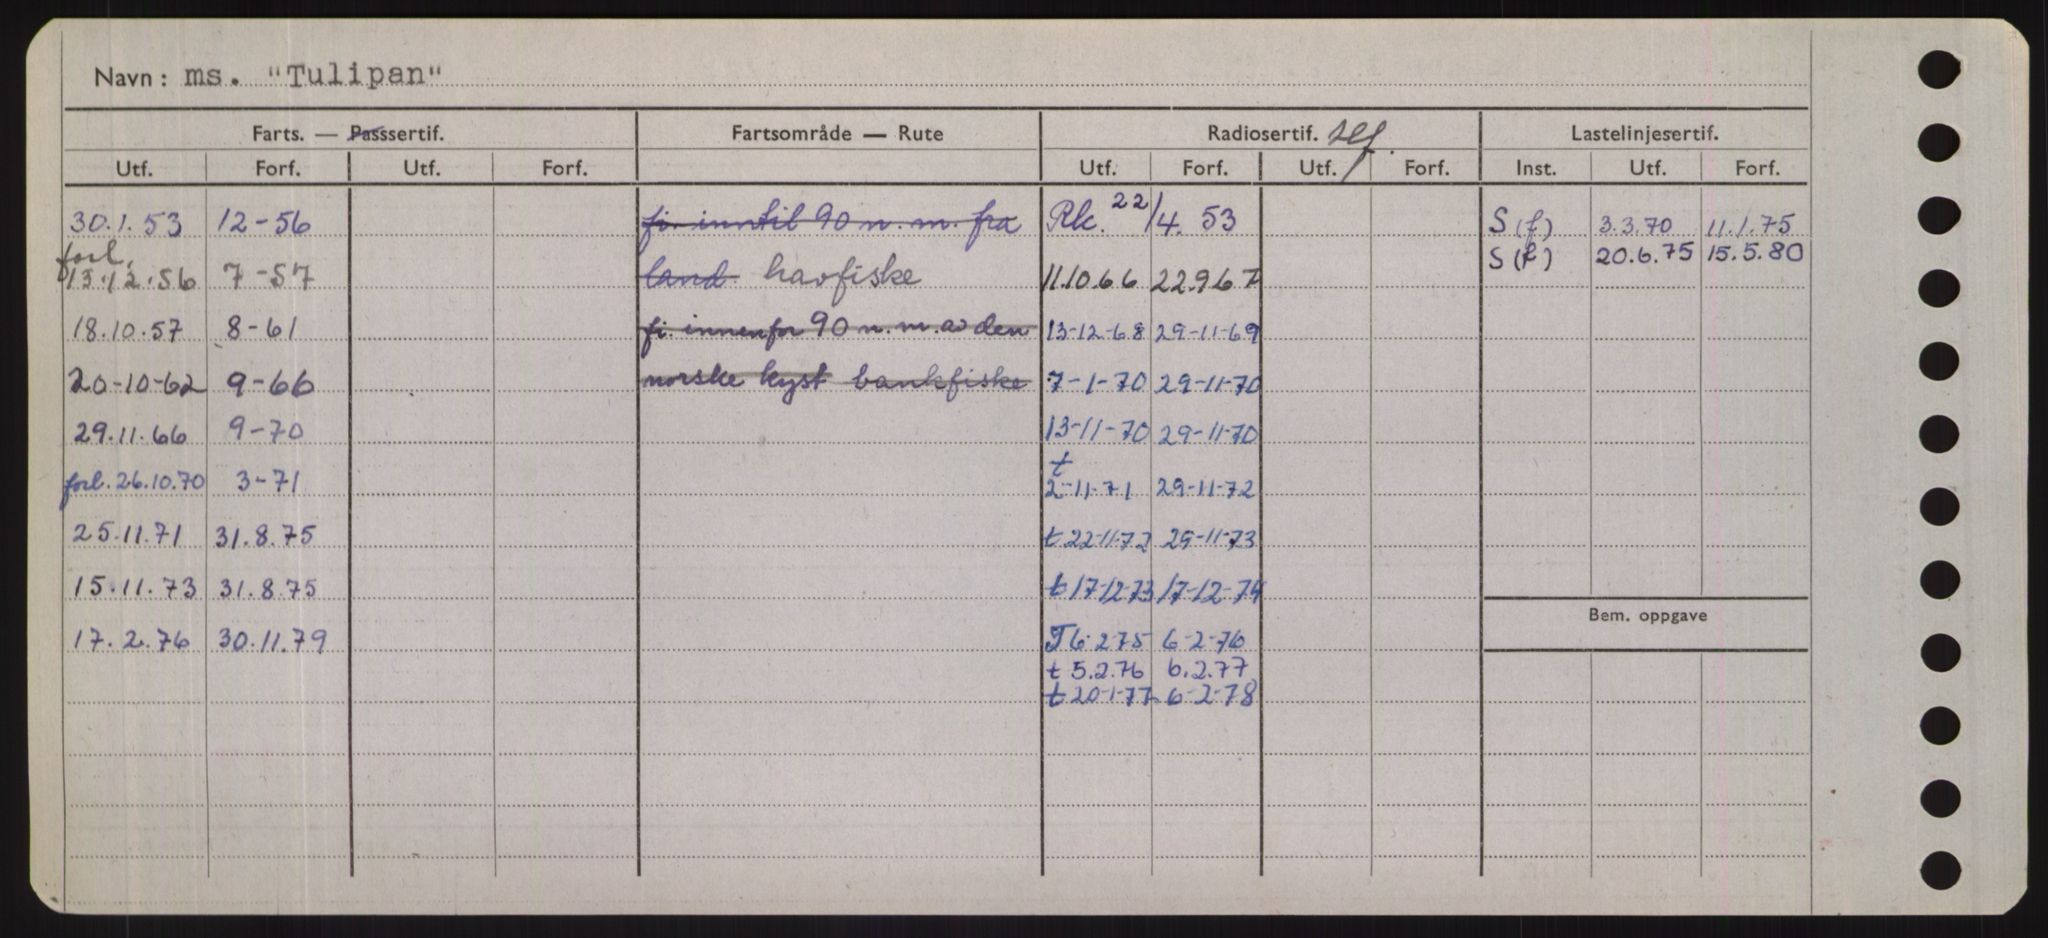 Navn: ms. "Tulipan"
Farts. — Passsertif. Fartsområde — Rute Radiosertif. Lastelinjesertif.
Utf. Forf. Utf. Forf. Utf. Forf. Utf. Forf. Inst. Utf. Forf.
30.1.53 12-56 fi. inntil 90 n. m. fra Rk. 22/4. 53 S (f) 3.3.70 11.1.75
S (f) 20.6.75 15.5.80
forl.
13.12.56 7-57 land havfiske 11.10.66 22.9.67
18.10.57 8-61 fi. innenfor 90 n. m. av den 13-12-68 29-11-69
20-10-62 9-66 norske kyst bankfiske 7-1-70 29-11-70
29.11.66 9-70 13-11-70 29-11-70
forl. 26.10.70 3-71 t 2-11-71 29-11-72
25.11.71 31.8.75 t 22-11-72 29-11-73
15.11.73 31.8.75 t 17-12-73 17-12-74
Bem. oppgave
17.2.76 30.11.79 T 6-2-75 6-2-76
t 5.2.76 6.2.77
t 20-1-77 6-2-78